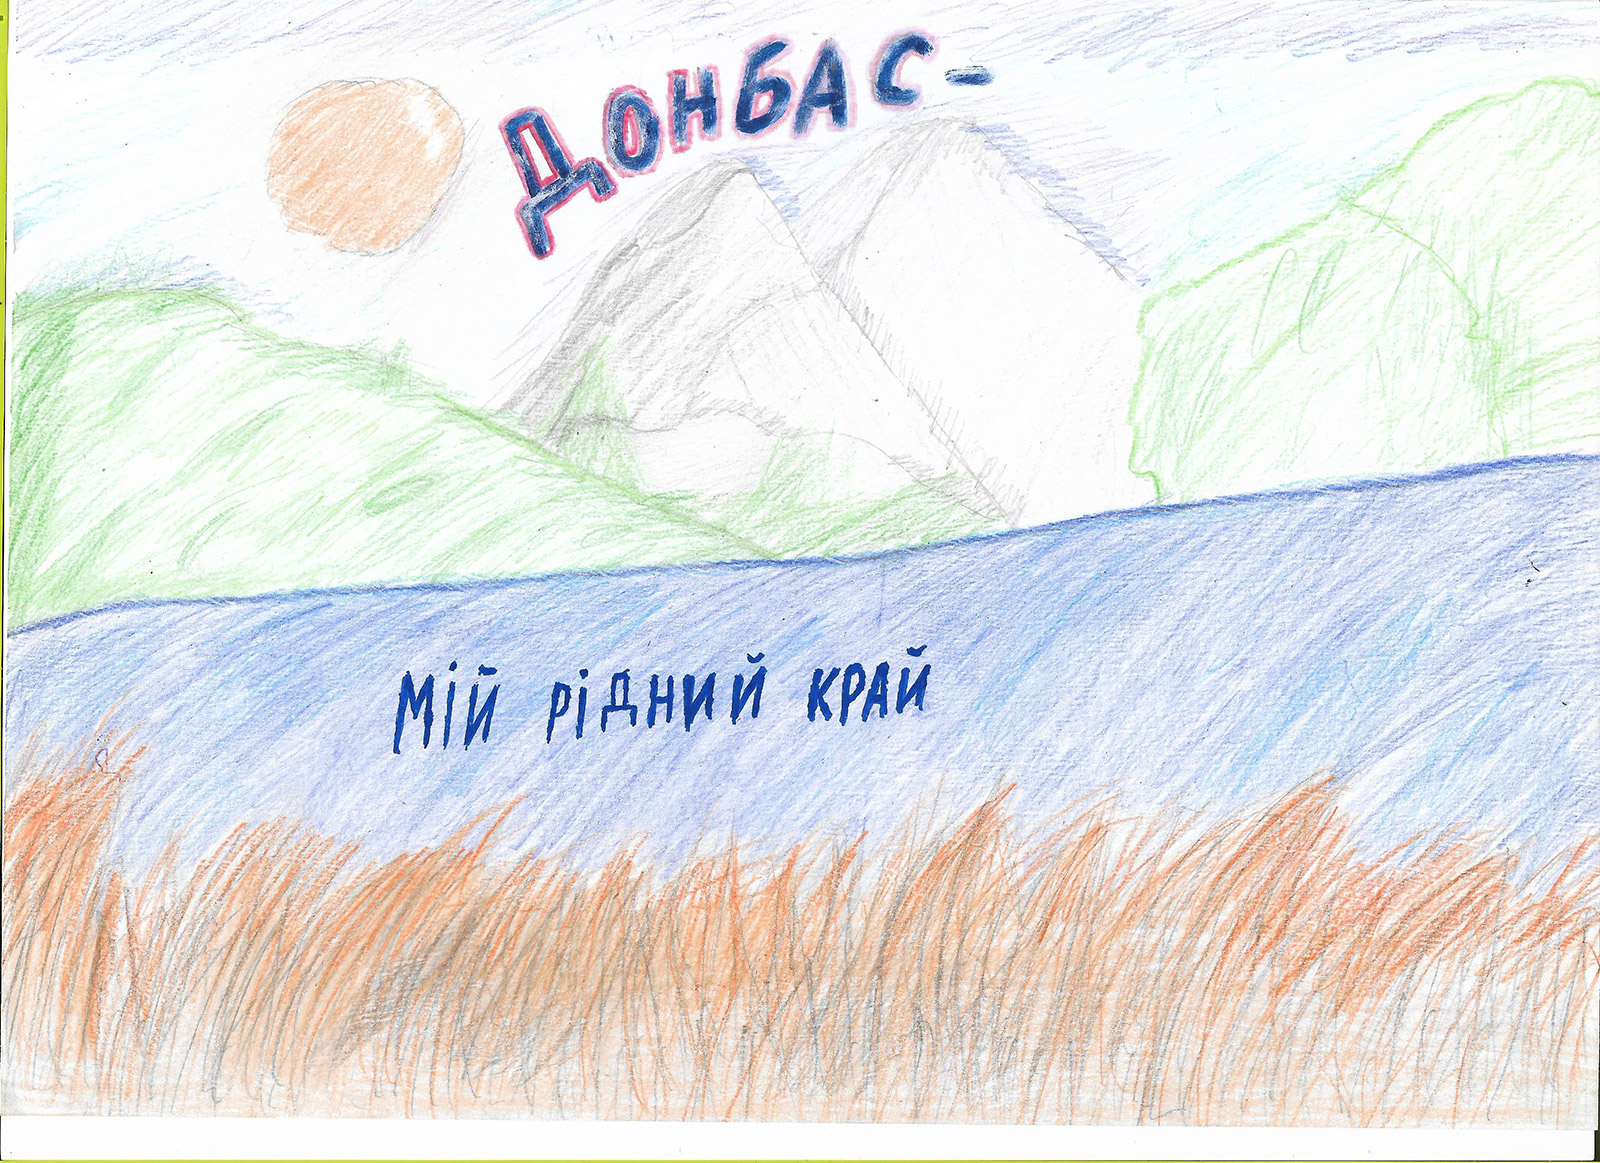 ДОНБАС -
Мій рідний край